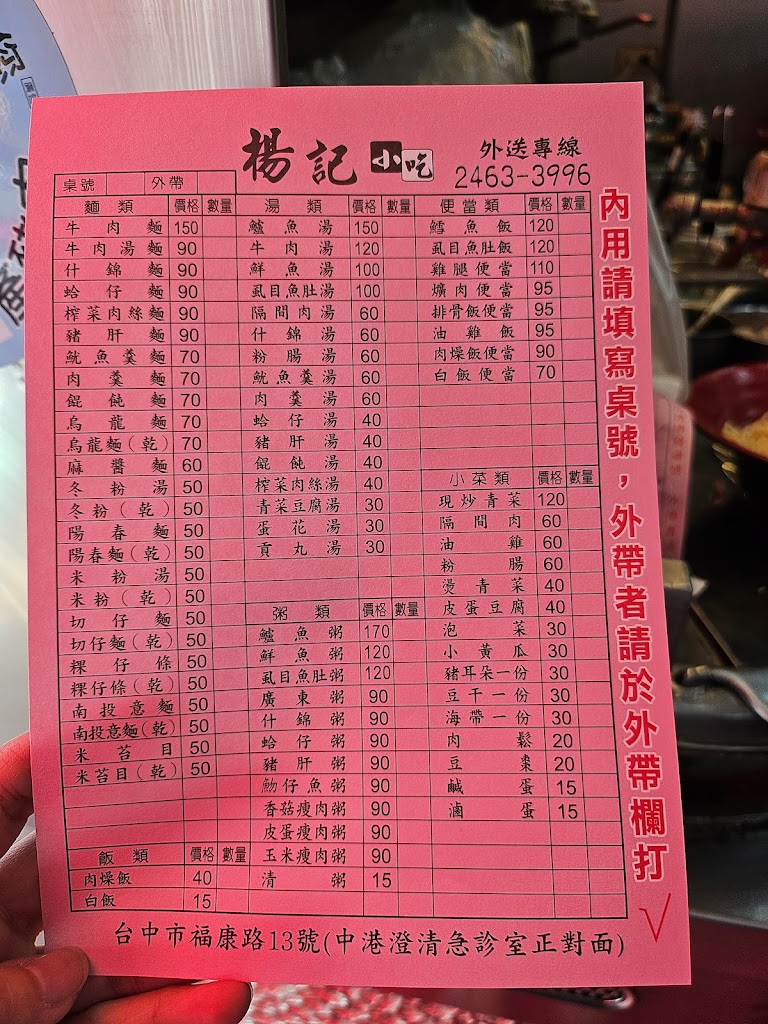 楊記小吃
外送專線
2463-3996
桌號 外帶
麵類 價格 數量
牛肉麵 150
牛肉湯麵 90
什錦麵 90
蛤仔麵 90
榨菜肉絲麵 90
豬肝麵 90
魷魚羹麵 70
肉羹麵 70
餛飩麵 70
烏龍麵 70
烏龍麵(乾) 70
麻醬麵 60
冬粉湯 50
冬粉(乾) 50
陽春麵 50
陽春麵(乾) 50
米粉湯 50
米粉(乾) 50
切仔麵 50
切仔麵(乾) 50
粿仔條 50
粿仔條(乾) 50
南投意麵 50
南投意麵(乾) 50
米苔目 50
米苔目(乾) 50
飯類 價格 數量
肉燥飯 40
白飯 15
湯類 價格 數量
鱸魚湯 150
牛肉湯 120
鮮魚湯 100
虱目魚肚湯 100
隔間肉湯 60
什錦湯 60
粉腸湯 60
魷魚羹湯 60
肉羹湯 60
蛤仔湯 40
豬肝湯 40
餛飩湯 40
榨菜肉絲湯 40
青菜豆腐湯 30
蛋花湯 30
貢丸湯 30
粥類 價格 數量
鱸魚粥 170
鮮魚粥 120
虱目魚肚粥 120
廣東粥 90
什錦粥 90
蛤仔粥 90
豬肝粥 90
魩仔魚粥 90
香菇瘦肉粥 90
皮蛋瘦肉粥 90
玉米瘦肉粥 90
清粥 15
便當類 價格 數量
鱈魚飯 120
虱目魚肚飯 120
雞腿便當 110
爌肉便當 95
排骨飯便當 95
油雞飯 95
肉燥飯便當 90
白飯便當 70
小菜類 價格 數量
現炒青菜 120
隔間肉 60
油雞 60
粉腸 60
燙青菜 40
皮蛋豆腐 40
泡菜 30
小黃瓜 30
豬耳朵一份 30
豆干一份 30
海帶一份 30
肉鬆 20
豆棗 20
鹹蛋 15
滷蛋 15
內用請填寫桌號，外帶者請於外帶欄打√
台中市福康路13號(中港澄清急診室正對面)